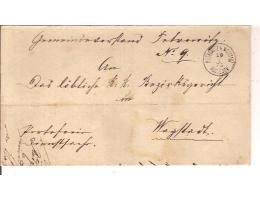 Gemeindevorstand
No 9.
An
Das löbliche k. k. Bezirksgericht
in
Wagstadt.
Portofreie
Dienstsache.